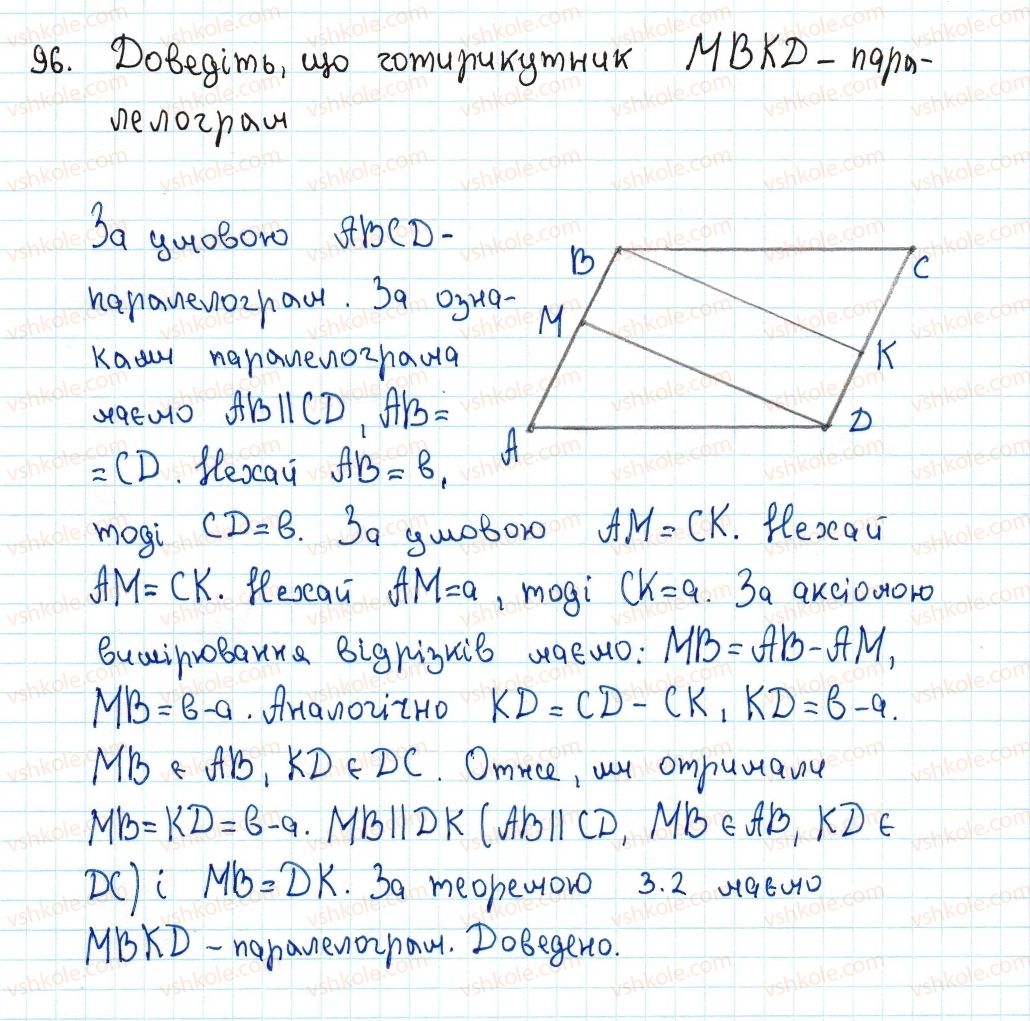 96. Доведіть, що чотирикутник MBKD – пара-
лелограм
За умовою ABCD-
паралелограм. За озна-
ками паралелограма
маємо AB||CD, AB=
=CD. Нехай AB=в,
тоді CD=в. За умовою AM=CK. Нехай
AM=CK. Нехай AM=a, тоді CK=a. За аксіомою
вимірювання відрізків маємо: MB=AB-AM,
MB=в-a. Аналогічно KD=CD-CK, KD=в-a.
MB є AB, KD є DC. Отже, ми отримали
MB=KD=в-a. MB||DK (AB||CD, MB є AB, KD є
DC) і MB=DK. За теоремою 3.2 маємо
MBKD – паралелограм. Доведено.
B
C
M
K
A
D
vshkole.com